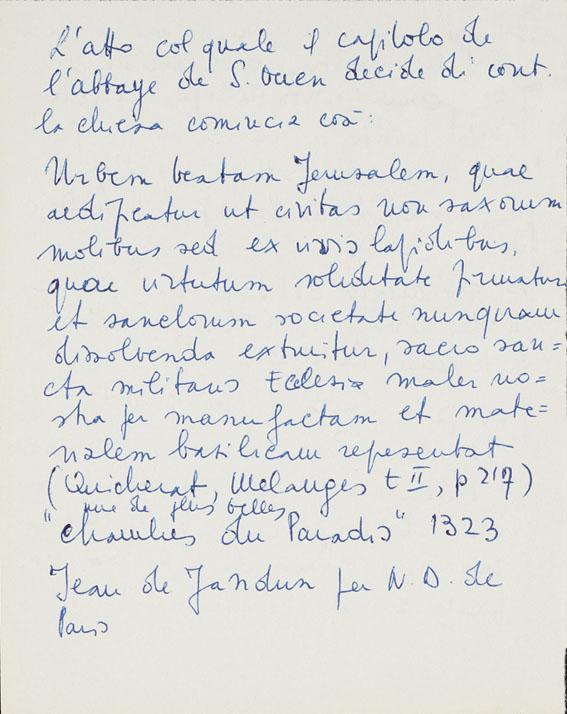 L'atto col quale il capitolo de
l'abbaye de S. Ouen decide di cont.
la chiesa comincia così:
Urbem beatam Jerusalem, quae
aedificatur ut civitas non saxorum
molibus sed ex vivis lapidibus,
quae virtutum soliditate firmatur
et sanctorum societate nunquam
dissolvenda extruitur, sacro san=
cta militans Ecclesia mater no=
stra per manufactam et mate=
rialem basilicam representat
(Quicherat, Melanges t II, p 217)
une de plus belles
"chambres du Paradis" 1323
Jean de Jandun per N. D. de
Paris